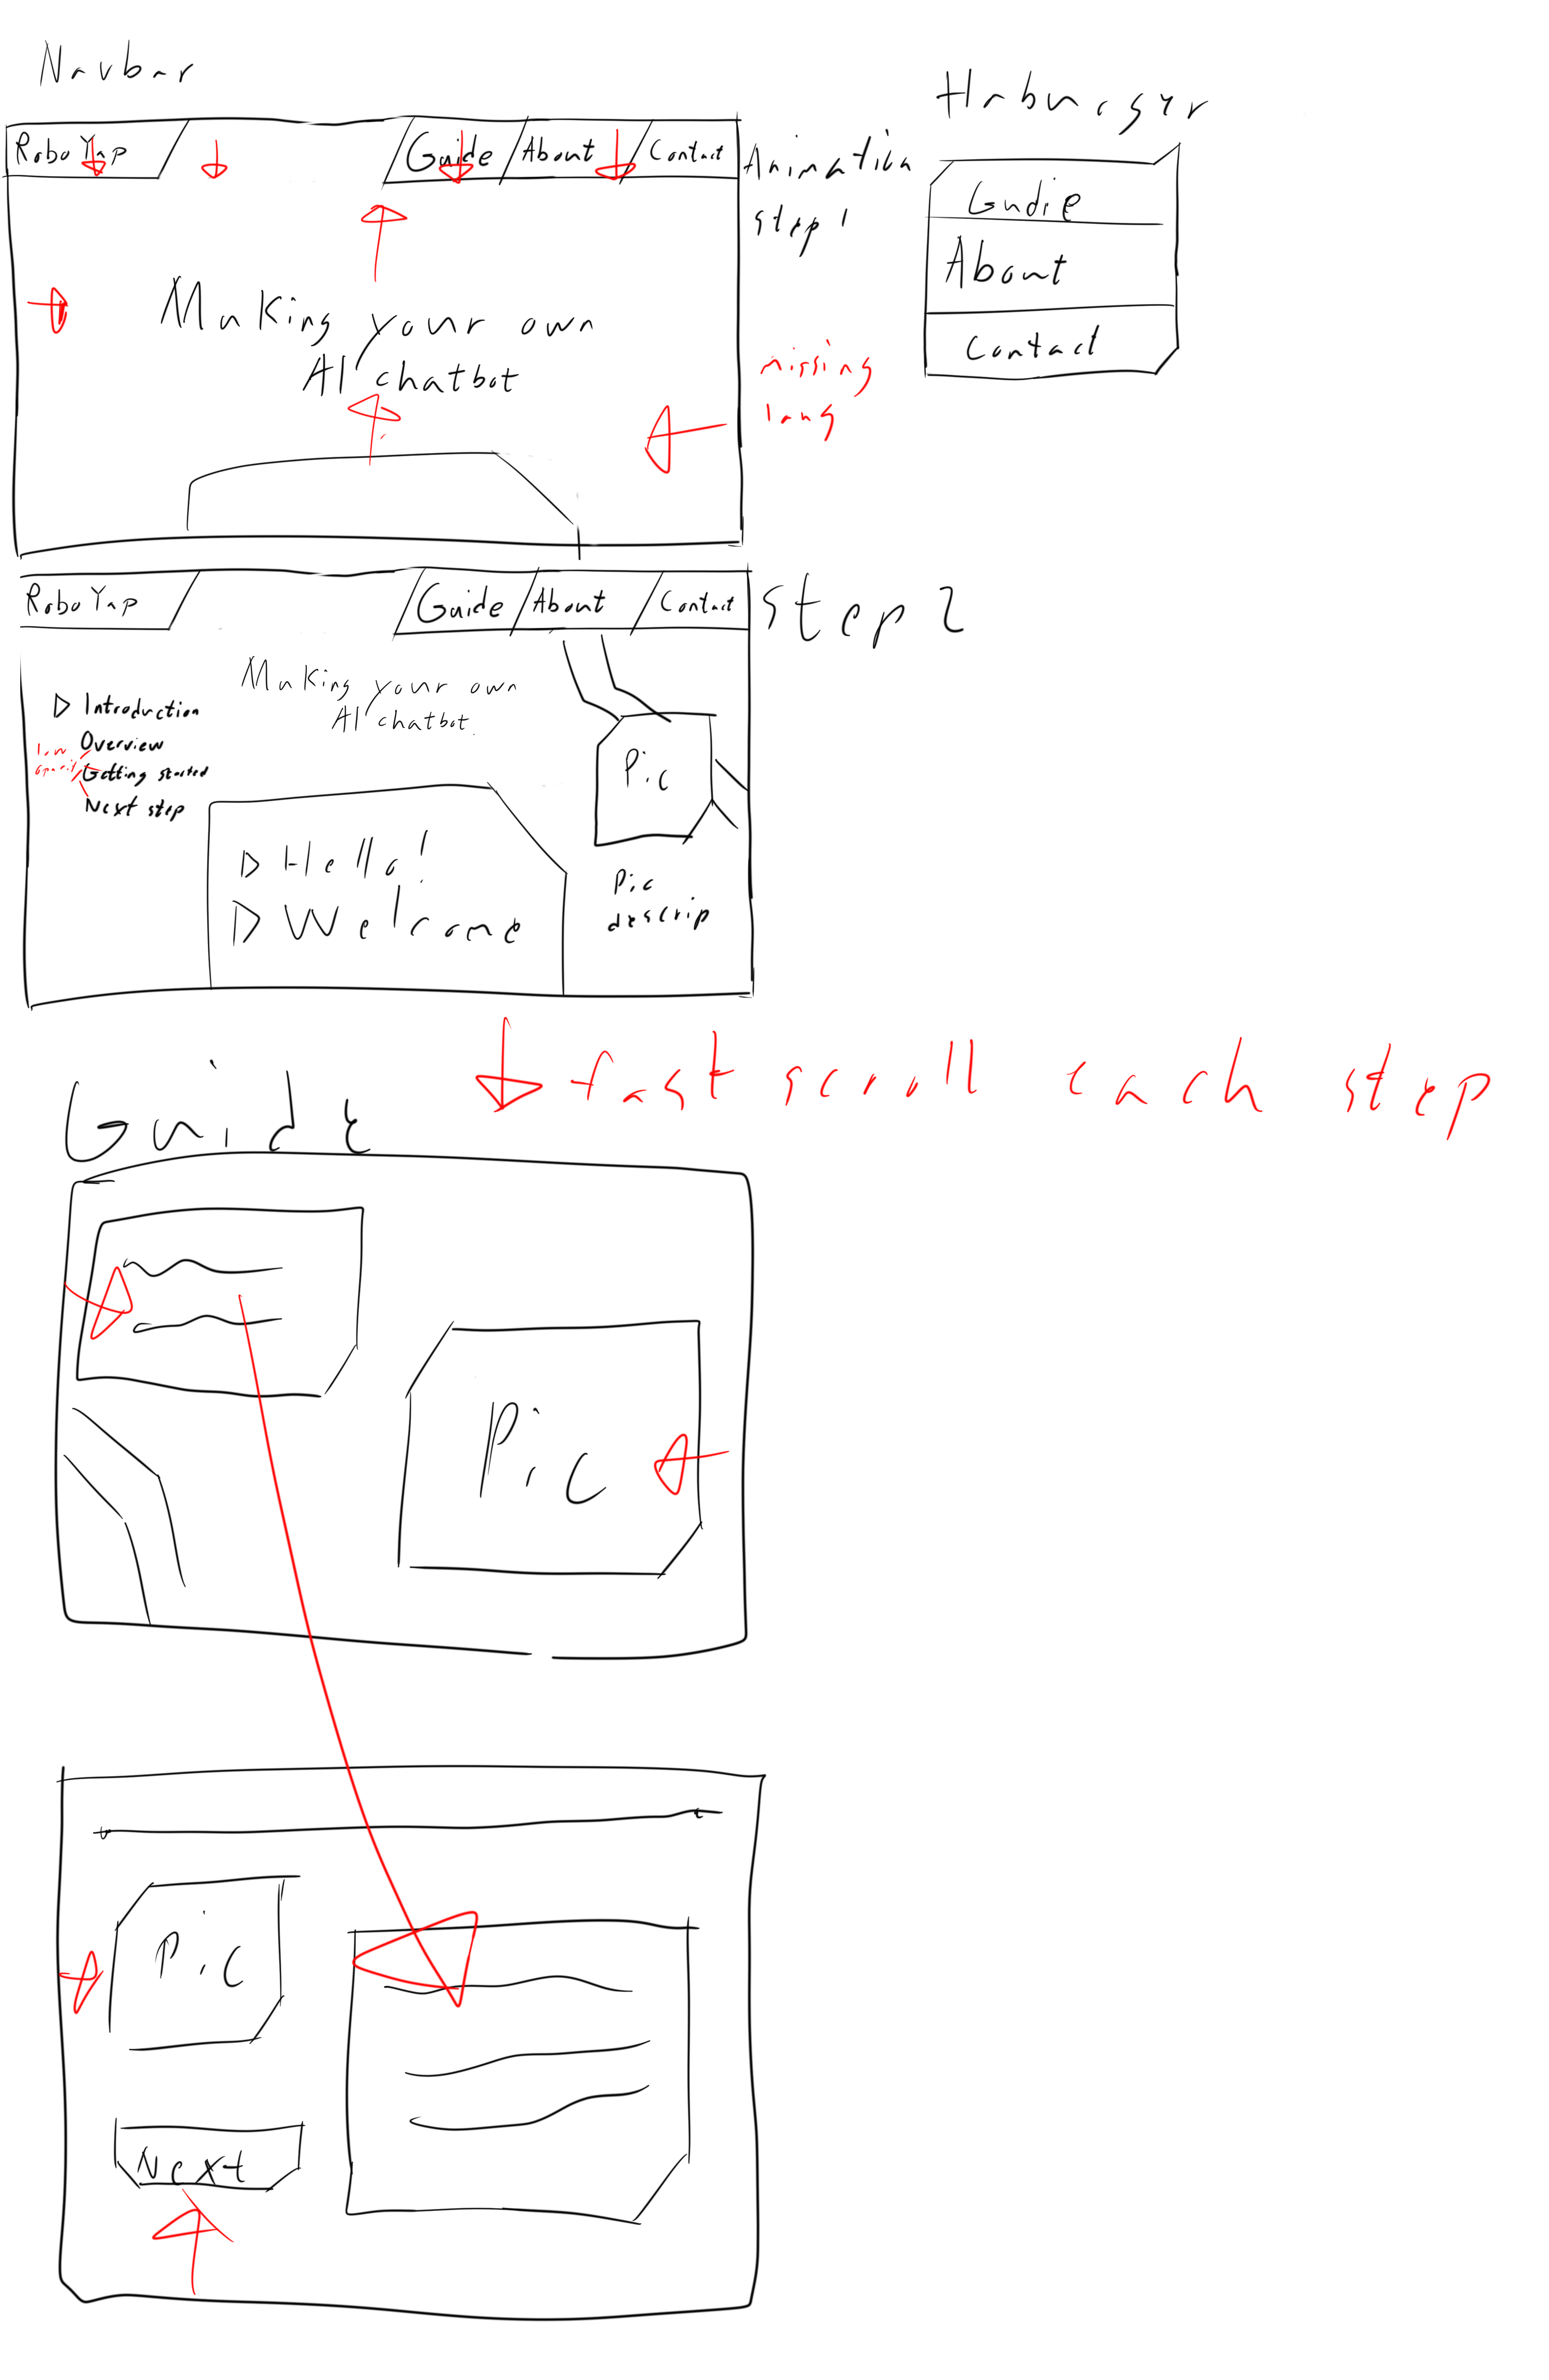 Navbar
Robo Yap
Guide
About
Contact
Animation
step 1
Making your own
AI chatbot
missing
lang
Habmurgyr
Gudie
About
Contact
Robo Yap
Guide
About
Contact
Step 2
Making your own
AI chatbot.
Introduction
Overview
Getting started
Next step
low
Pic
Hello!
Welcome
Pic
descrip
fast scroll each step
Guide
Pic
Pic
Next